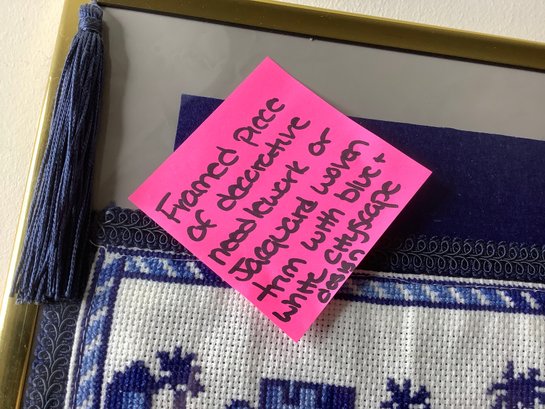 Framed piece
of decorative
needlework or
Jacquard woven
trim with blue +
white cityscape
design